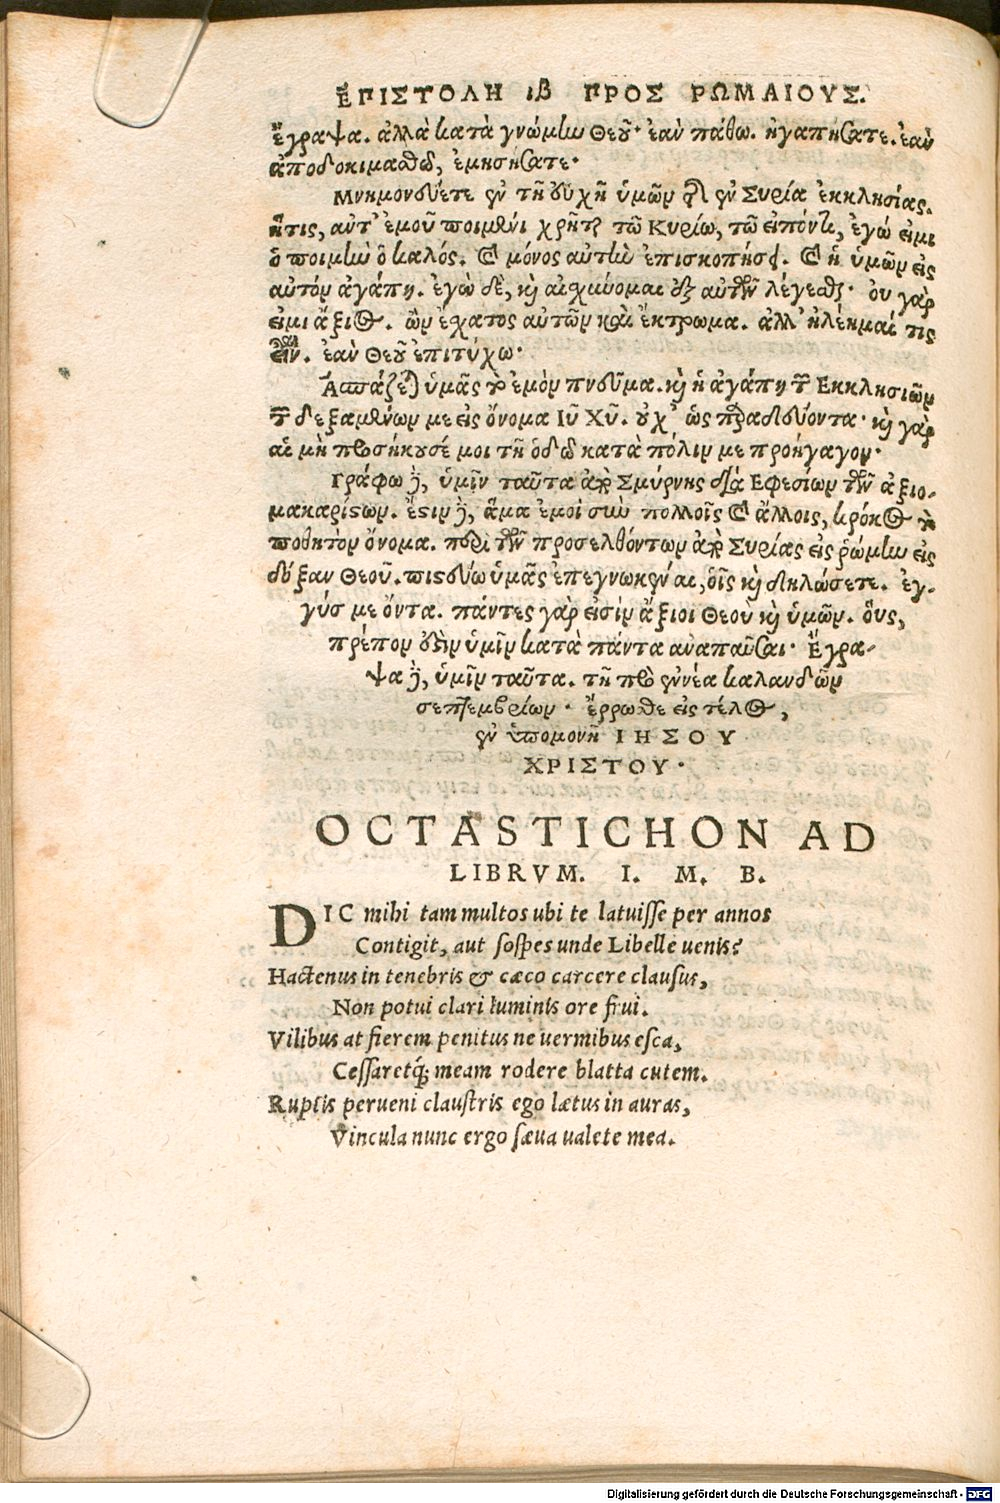 ΕΠΙΣΤΟΛΗ ιβ ΠΡΟΣ ΡΩΜΑΙΟΥΣ.
ἔγραψα. ἀλλὰ κατὰ γνώμην Θεοῦ· ἐὰν πάθω. ἠγαπήσατε. ἐὰν
ἀποδοκιμασθῶ, ἐμησήσατε·
Μνημονεύετε ἐν τῇ εὐχῇ ὑμῶν τῆς ἐν Συρίᾳ ἐκκλησίας.
ἥτις, αὐτ' ἐμοῦ ποιμένι χρῆται τῶ Κυρίω, τῶ εἰπόντι, ἐγώ εἰμι
ὁ ποιμὴν ὁ καλός. καὶ μόνος αὐτὴν ἐπισκοπήσει. καὶ ἡ ὑμῶν εἰς
αὐτόν ἀγάπη. ἐγὼ δὲ, καὶ αἰσχύνομαι ἐξ αὐτῶν λέγεσθαι· ου γὰρ
εἰμι ἄξιος. ὢν ἔσχατος αὐτῶν καὶ ἔκτρωμα. ἀλλ' ἠλέημαί τις
εἶναι. ἐὰν Θεοῦ ἐπιτύχω·
Ασπάζεται ὑμᾶς τὸ ἐμὸν πνεῦμα. καὶ ἡ ἀγάπη τῶν Εκκλησιῶν
τῶν δεξαμένων με εἰς ὄνομα Ιῦ Χῦ. οὐχ' ὡς παραδεύοντα· καὶ γὰρ
αἱ μὴ προσήκουσέ μοι τῇ ὁδῶ κατὰ πόλιν με προήγαγον·
Γράφω δὲ, ὑμῖν ταῦτα ἀπὸ Σμύρνης διὰ Εφεσίων τῶν ἀξιο-
μακαρίστων. ἔστιν δὲ, ἅμα ἐμοί σὺν πολλοῖς καὶ ἄλλοις, κρόκος τὸ
ποθητὸν ὄνομα. περὶ τῶν προσελθόντων ἀπὸ Συρίας εἰς ῥώμην εἰς
δόξαν Θεοῦ. πιστεύω ὑμᾶς ἐπεγνωκέναι, οἷς καὶ δηλώσετε. ἐγ-
γύσ με ὄντα. πάντες γὰρ εἰσίν ἄξιοι Θεοῦ καὶ ὑμῶν. οὓς,
πρέπον ἐστὶν ὑμῖν κατὰ πάντα αναπαῦσαι· Ἔγρα-
ψα δὲ, ὑμῖν ταῦτα. τῇ πρὸ ἐννέα καλανδῶν
σεπτεμβρίων· ἔρρωσθε εἰς τέλος,
ἐν ὑπομονῇ ΙΗΣΟΥ
ΧΡΙΣΤΟΥ·
OCTASTICHON AD
LIBRVM. I. M. B.
DIC mihi tam multos ubi te latuisse per annos
Contigit, aut sospes unde Libelle uenis?
Hactenus in tenebris & cæco carcere clausus,
Non potui clari luminis ore frui.
Vilibus at fierem penitus ne uermibus esca,
Cessaretq; meam rodere blatta cutem.
Ruptis perueni claustris ego lætus in auras,
Vincula nunc ergo sæua ualete mea.
Digitalisierung gefördert durch die Deutsche Forschungsgemeinschaft - DFG